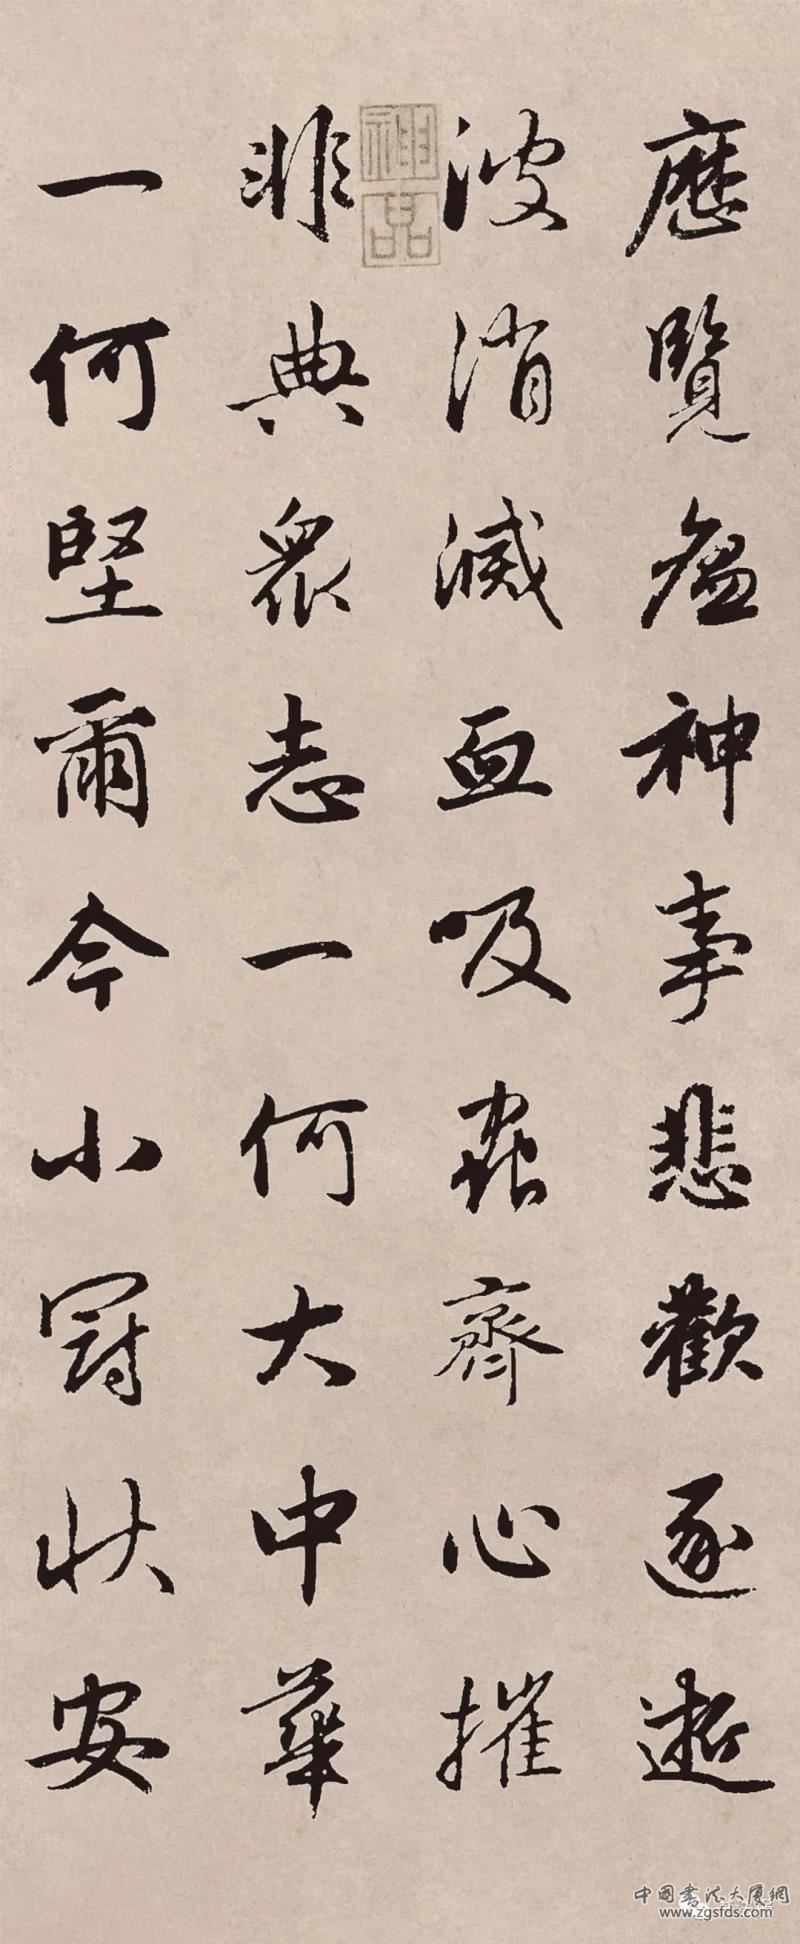 歷覽瘟神事悲歡逐逝
波消滅血吸蟲齊心摧
非典衆志一何大中華
一何堅爾今小冠狀安
神品
中國書法大廈網
www.zgsfds.com